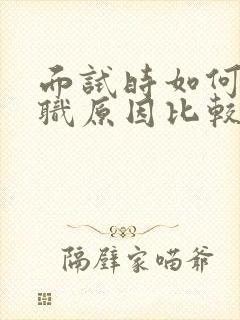 而試時如何
職原因比較
隔壁家喵爺